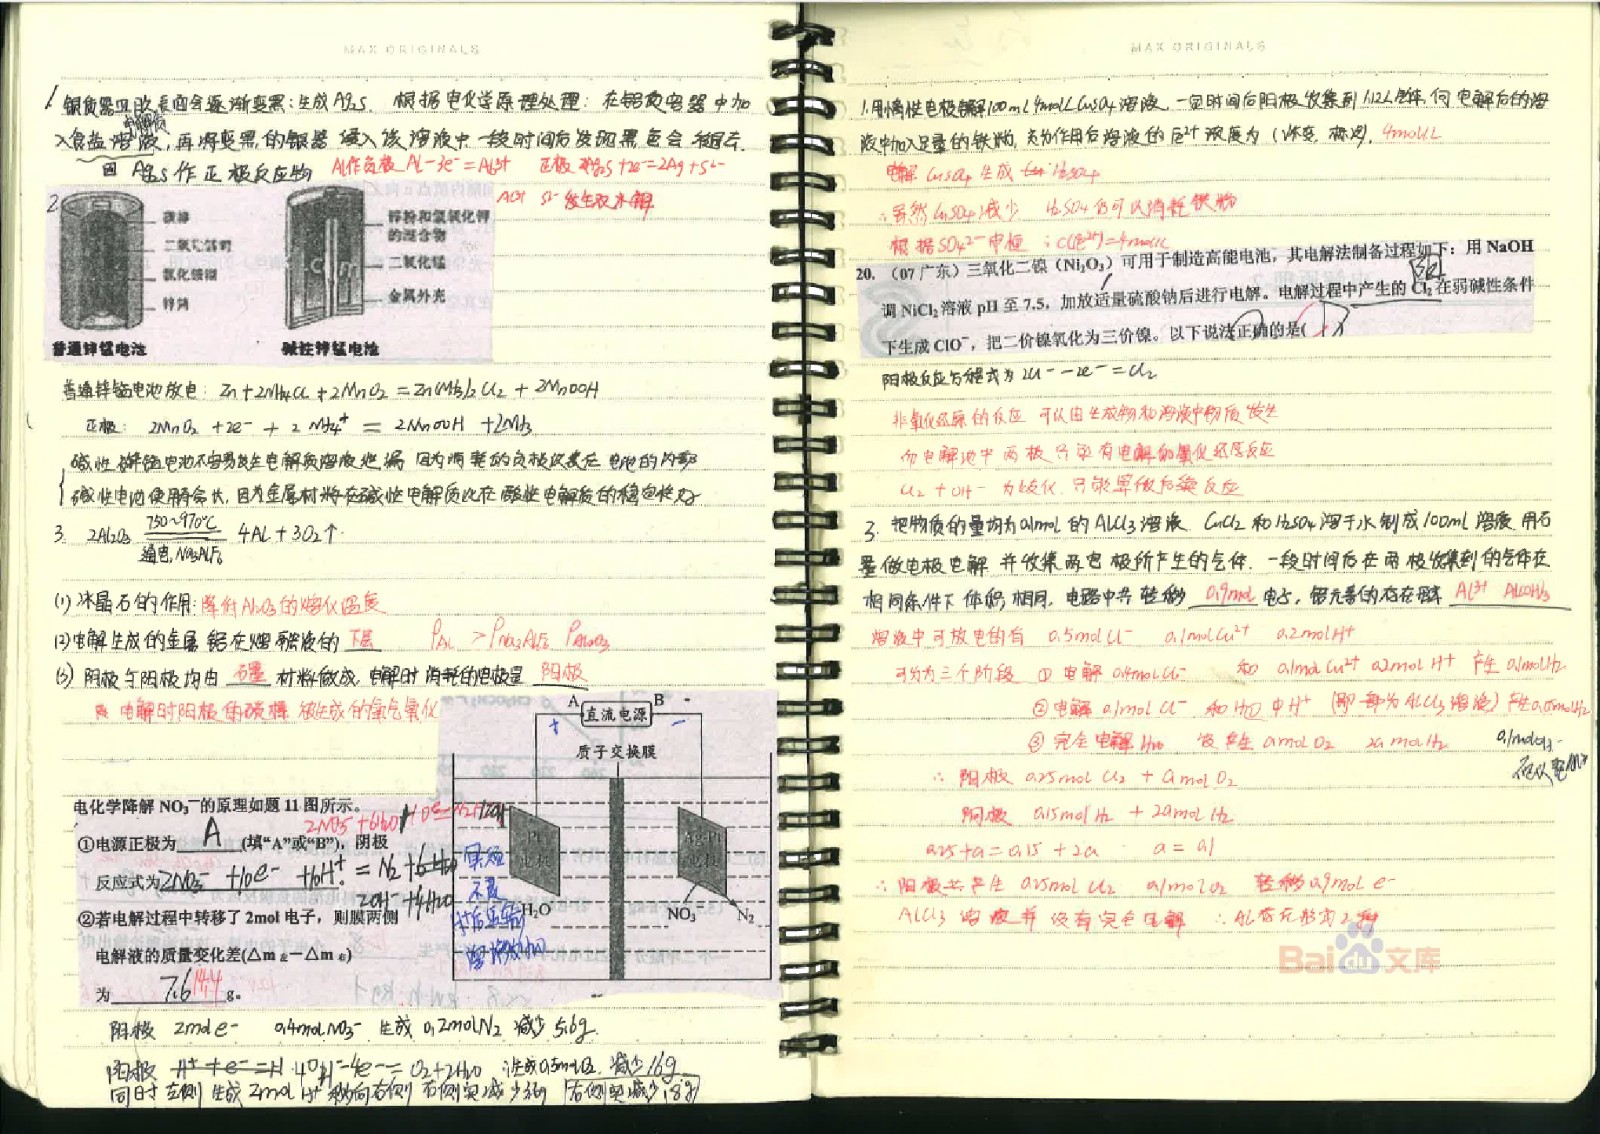 MAX ORIGINALS
1. 银质器皿 表面会逐渐变黑:生成Ag₂S. 根据电化学原理处理: 在铝质容器中加
入食盐溶液,再将变黑的银器浸入该溶液中 一段时间后发现黑色会褪去.
因 Ag₂S作正极反应物 Al作负极 Al-3e⁻=Al³⁺ 正极 Ag₂S+2e⁻=2Ag+S²⁻
S²⁻发生双水解
2.
碳棒
二氧化锰
氯化铵糊
锌筒
普通锌锰电池
锌粉和氢氧化钾
的混合物
二氧化锰
金属外壳
碱性锌锰电池
普通锌锰电池放电: Zn+2NH₄Cl+2MnO₂=Zn(NH₃)₂Cl₂+2MnOOH
正极: 2MnO₂+2e⁻+2NH₄⁺=2MnOOH+2NH₃
碱性锌锰电池不容易发生电解质溶液泄漏 因为消耗的负极改装在电池的内部
碱性电池使用寿命长,因为金属材料在碱性电解质比在酸性电解质的稳定性好
3. 2Al₂O₃ 750~970℃ 通电,Na₃AlF₆ 4Al+3O₂↑
(1)冰晶石的作用:降低Al₂O₃的熔化温度
(2)电解生成的金属铝在熔融液的 下层 ρAl > ρNa₃AlF₆ ρAl₂O₃
(3) 阴极与阳极均由 石墨 材料做成,电解时消耗的电极是 阳极
电解时阳极的碳棒 被生成的氧气氧化
A 直流电源 B -
+ -
质子交换膜
电化学降解 NO₃⁻的原理如题 11 图所示。
2NO₃⁻+6H₂O+10e⁻=N₂+12OH⁻
①电源正极为 A (填“A”或“B”),阴极
反应式为 2NO₃⁻+10e⁻+12H⁺=N₂+6H₂O
②若电解过程中转移了 2mol 电子,则膜两侧
电解液的质量变化差(△m左-△m右)
为 7.6 14.4 g。
Pt 电极
Ag-Pt 电极
H₂O
NO₃⁻
N₂
阴极 2mol e⁻ 0.4molNO₃⁻ 生成 0.2molN₂ 减少 5.6g.
阳极 H⁺+e⁻=H 4OH⁻-4e⁻=O₂+2H₂O 生成0.5molO₂. 减少16g
同时左侧 生成2mol H⁺ 移向右侧 右侧实减少3.6g 右侧实减少18g
MAX ORIGINALS
1.用惰性电极电解100mL 4mol/L CuSO₄溶液 一定时间后阳极收集到1.12L气体,向电解后的溶
液中加入足量的铁粉,充分作用后溶液的Fe²⁺浓度为 ( 体变, 标况). 4mol/L
电解 CuSO₄ 生成 H₂SO₄
∴虽然CuSO₄减少 H₂SO₄仍可以消耗铁粉
根据SO₄²⁻守恒 ∴c(Fe²⁺)=4mol/L
20. (07 广东)三氧化二镍(Ni₂O₃)可用于制造高能电池,其电解法制备过程如下:用 NaOH
调 NiCl₂溶液 pH 至 7.5,加放适量硫酸钠后进行电解。电解过程中产生的 Cl₂ 在弱碱性条件
下生成 ClO⁻,把二价镍氧化为三价镍。以下说法正确的是( )
阳极反应方程式为 2Cl⁻-2e⁻=Cl₂
非氧化还原的反应 可以由生成物和溶液中物质发生
而电解池中两极只要有电解的氧化还原反应
Cl₂+OH⁻ 只能算做后续反应
3. 把物质的量均为0.1mol的AlCl₃溶液 CuCl₂和H₂SO₄溶于水制成100ml溶液 用石
墨做电极电解 并收集两电极所产生的气体. 一段时间后在两极收集到的气体在
相同条件下体积相同, 电路中共转移 0.9mol 电子, 铝元素的存在形式 Al³⁺ Al(OH)₃
溶液中可放电的有 0.5molCl⁻ 0.1molCu²⁺ 0.2molH⁺
可分为三个阶段 ①电解 0.4molCl⁻ 和 0.1molCu²⁺ 0.2mol H⁺ 产生 0.1molH₂
②电解 0.1mol Cl⁻ 和 H₂O 中H⁺ (即一部分为AlCl₃溶液) 产生0.05molH₂
③完全电解H₂O 设产生 a molO₂ 2a molH₂
∴ 阳极 0.25mol Cl₂ + a mol O₂
阴极 0.15mol H₂ + 2a mol H₂
0.25+a=0.15+2a a=0.1
∴阳极共产生 0.25mol Cl₂ 0.1molO₂ 转移0.9mol e⁻
AlCl₃溶液并没有完全电解 ∴Al存在形式2种
Bai du 文库